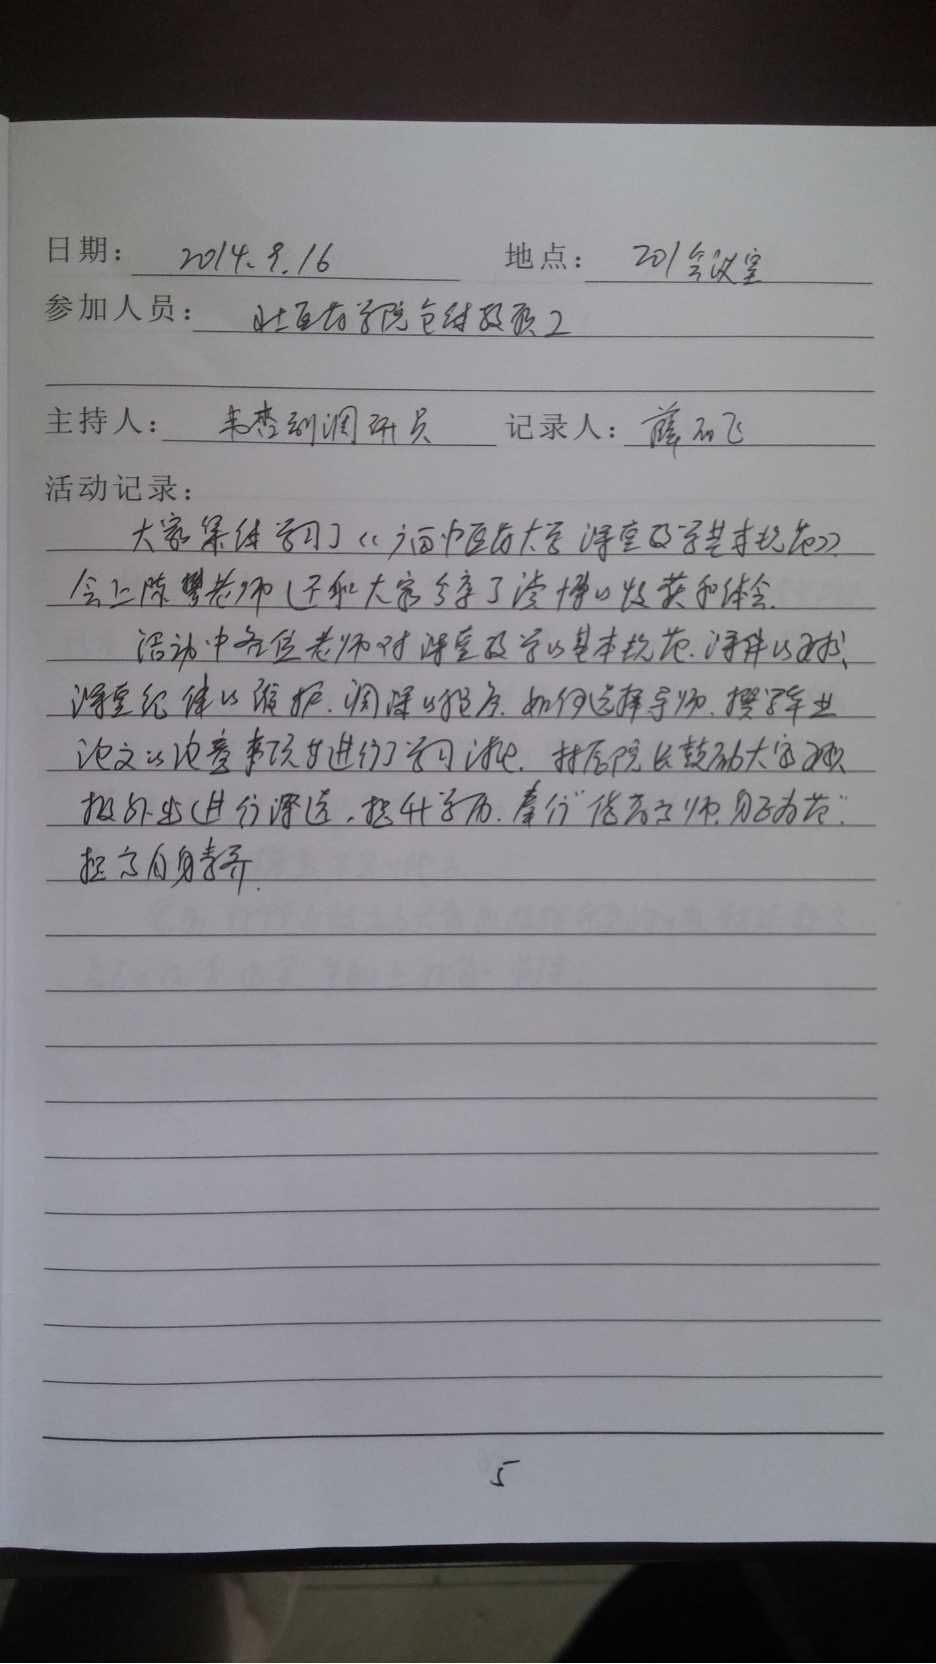 日期: 2014.9.16 地点: 201会议室
参加人员: 壮医药学院全体教职工
主持人: 韦松副调研员 记录人: 薛丽飞
活动记录:
大家集体学习了《广西中医药大学课堂教学基本规范》
会上陈攀老师还和大家分享了读博的收获和体会.
活动中各位老师对课堂教学的基本规范.课件的要求、
课堂纪律的维护.调课的程序.如何选择导师、撰写毕业
论文的注意事项等进行了学习讨论. 林辰院长鼓励大家积
极外出进行深造、提升学历.奉行“德高为师.身正为范”.
提高自身素养.
5